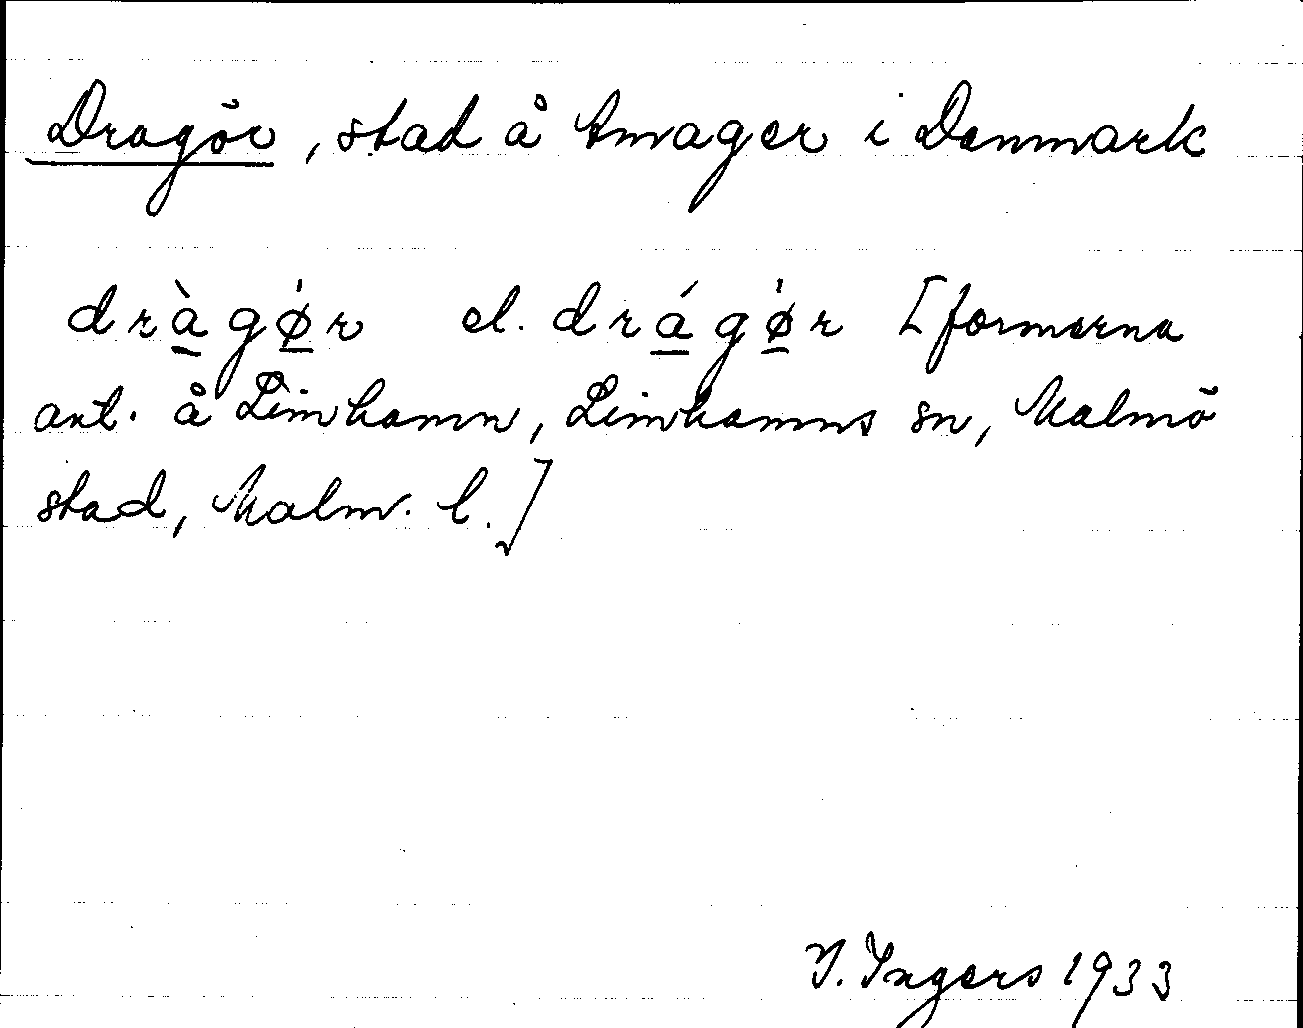 Dragör, stad å Amager i Danmark
dràgø̍r el. drágø̍r [formerna
ant. å Limhamn, Limhamns sn, Malmö
stad, Malm. l.]
I. Ingers 1933